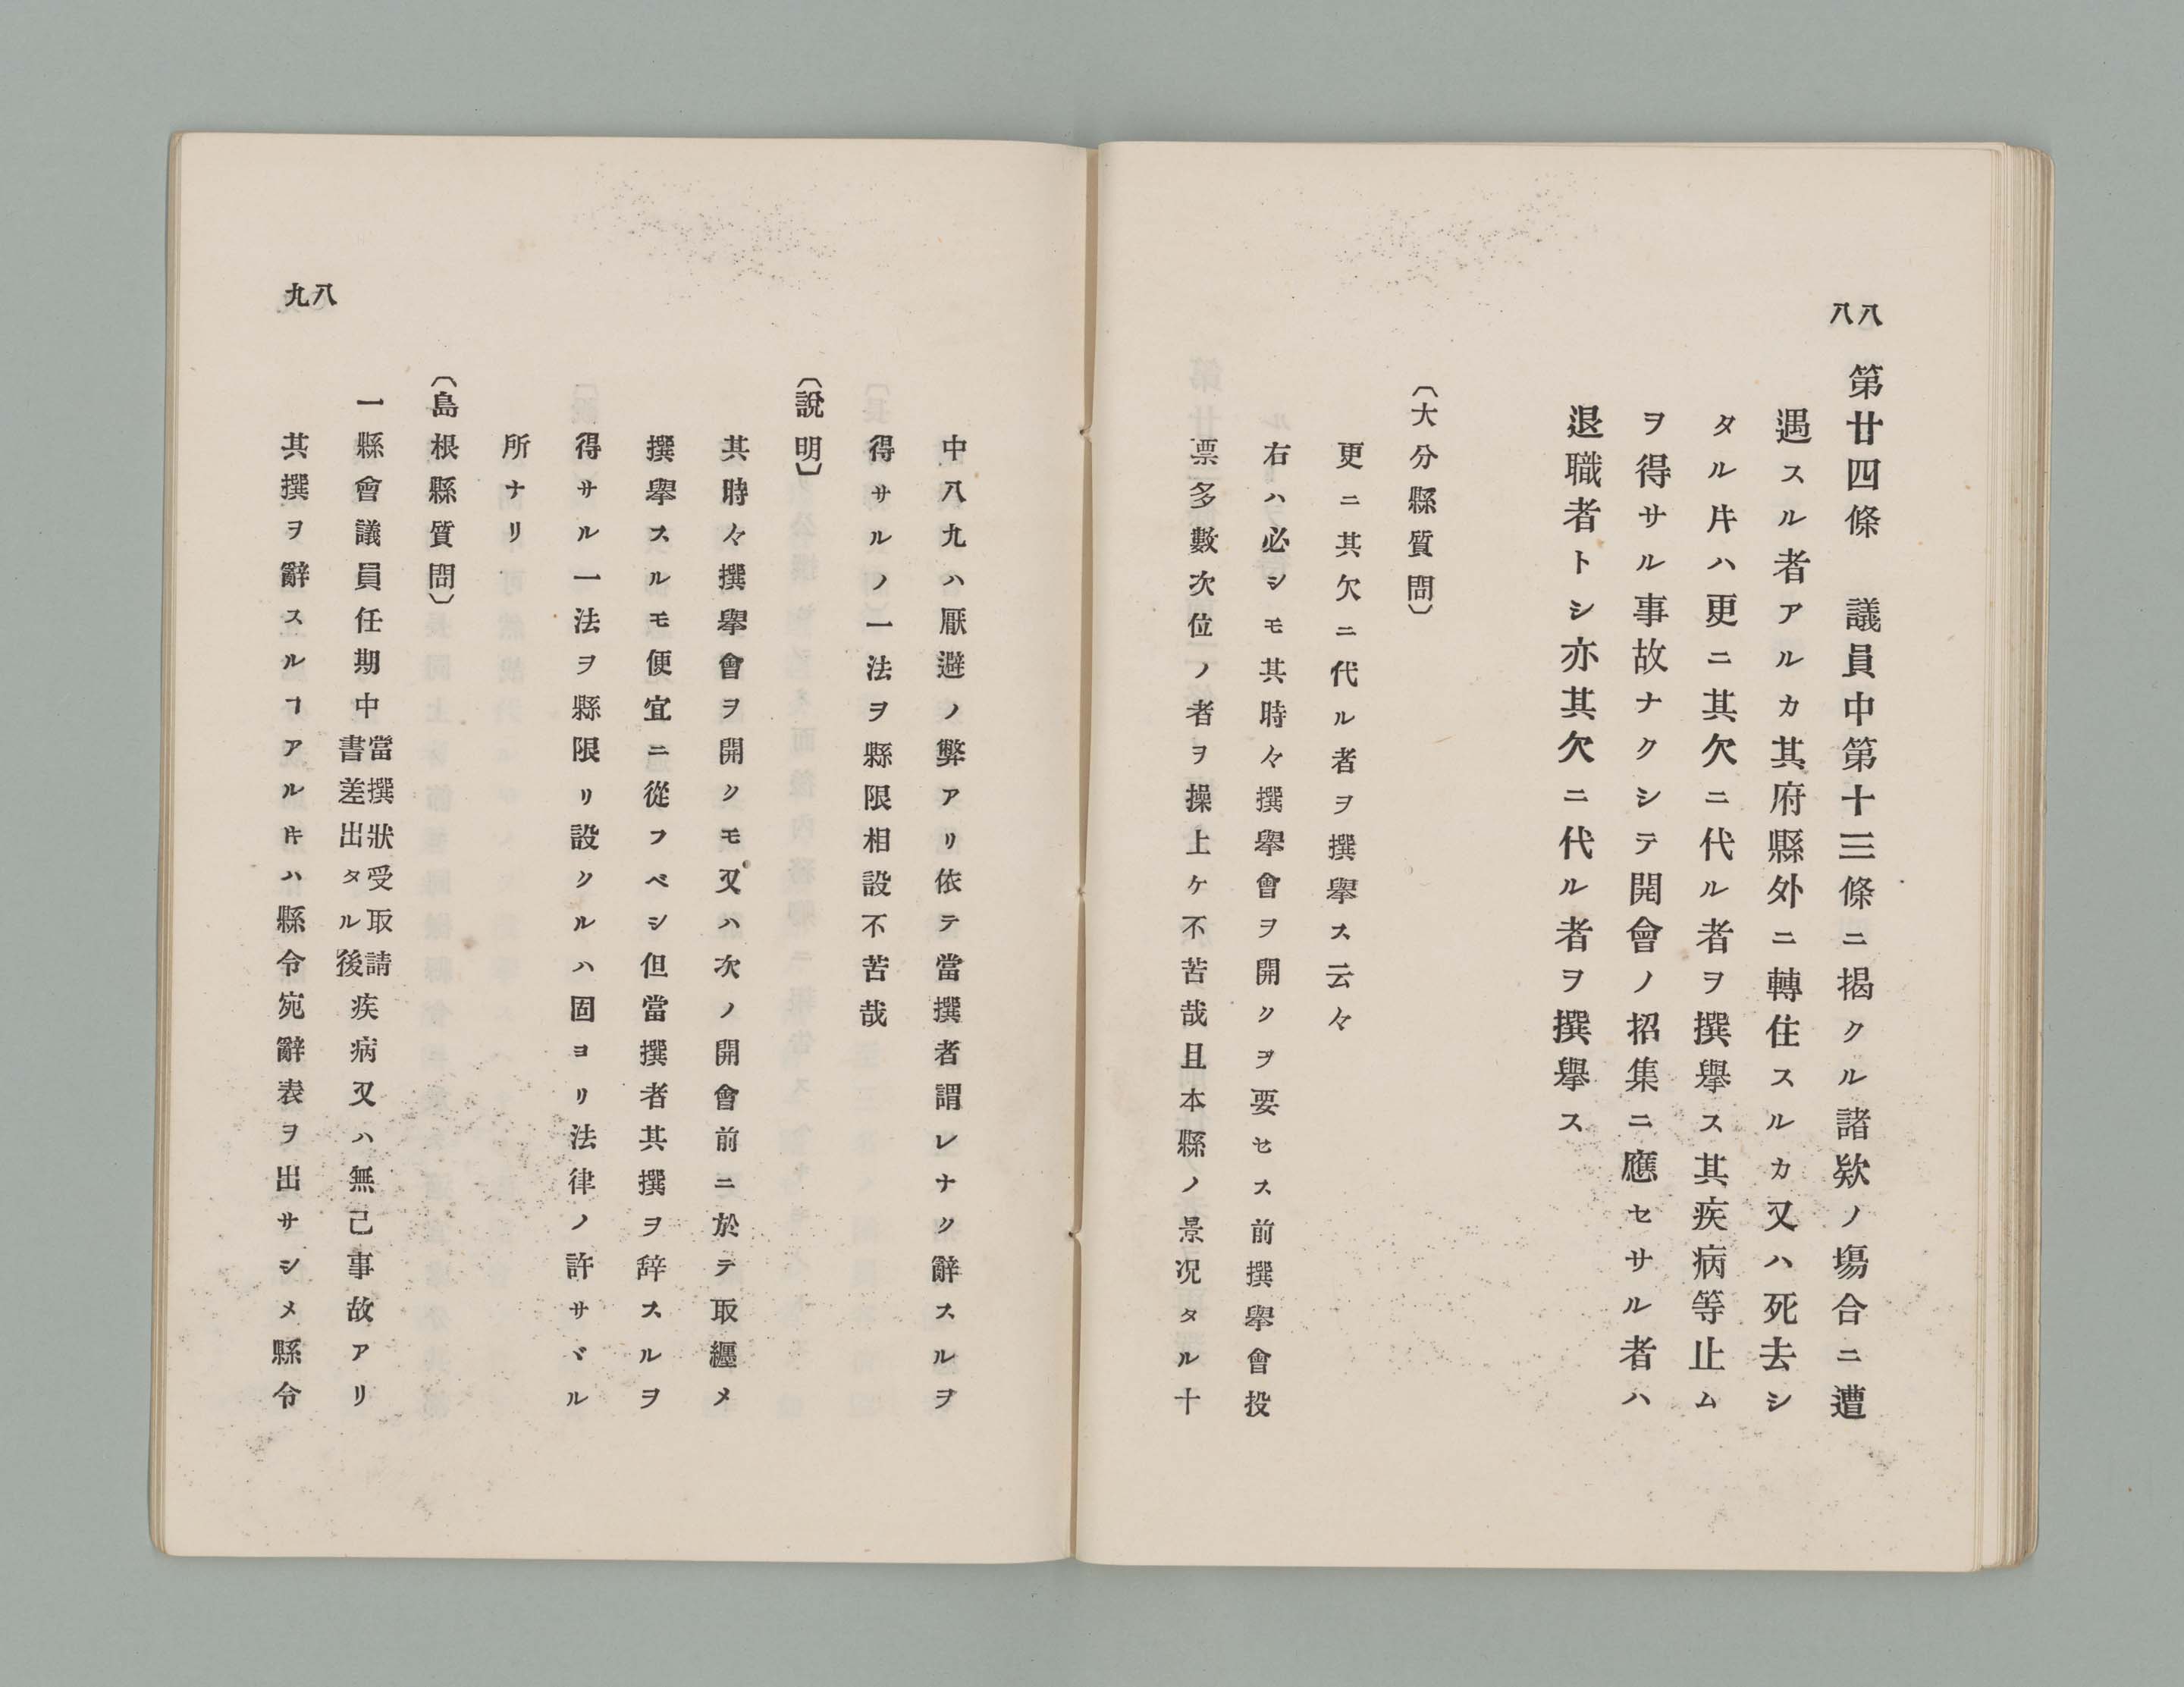 八八
第廿四條　議員中第十三條ニ揭クル諸欵ノ塲合ニ遭
遇スル者アルカ其府縣外ニ轉住スルカ又ハ死去シ
タル片ハ更ニ其欠ニ代ル者ヲ撰擧ス其疾病等止ム
ヲ得サル事故ナクシテ開會ノ招集ニ應セサル者ハ
退職者トシ亦其欠ニ代ル者ヲ撰擧ス
〔大分縣質問〕
更ニ其欠ニ代ル者ヲ撰擧ス云々
右ハ必シモ其時々撰擧會ヲ開クヲ要セス前撰擧會投
票多數次位ノ者ヲ操上ケ不苦哉且本縣ノ景况タル十
中八九ハ厭避ノ弊アリ依テ當撰者謂レナク辭スルヲ
得サルノ一法ヲ縣限相設不苦哉
〔說明〕
其時々撰擧會ヲ開クモ又ハ次ノ開會前ニ於テ取纒メ
撰擧スルモ便宜ニ從フベシ但當撰者其撰ヲ辞スルヲ
得サル一法ヲ縣限リ設クルハ固ヨリ法律ノ許サヾル
所ナリ
〔島根縣質問〕
一縣會議員任期中當撰狀受取請書差出タル後疾病又ハ無已事故アリ
其撰ヲ辭スルヿアル片ハ縣令宛辭表ヲ出サシメ縣令
八九